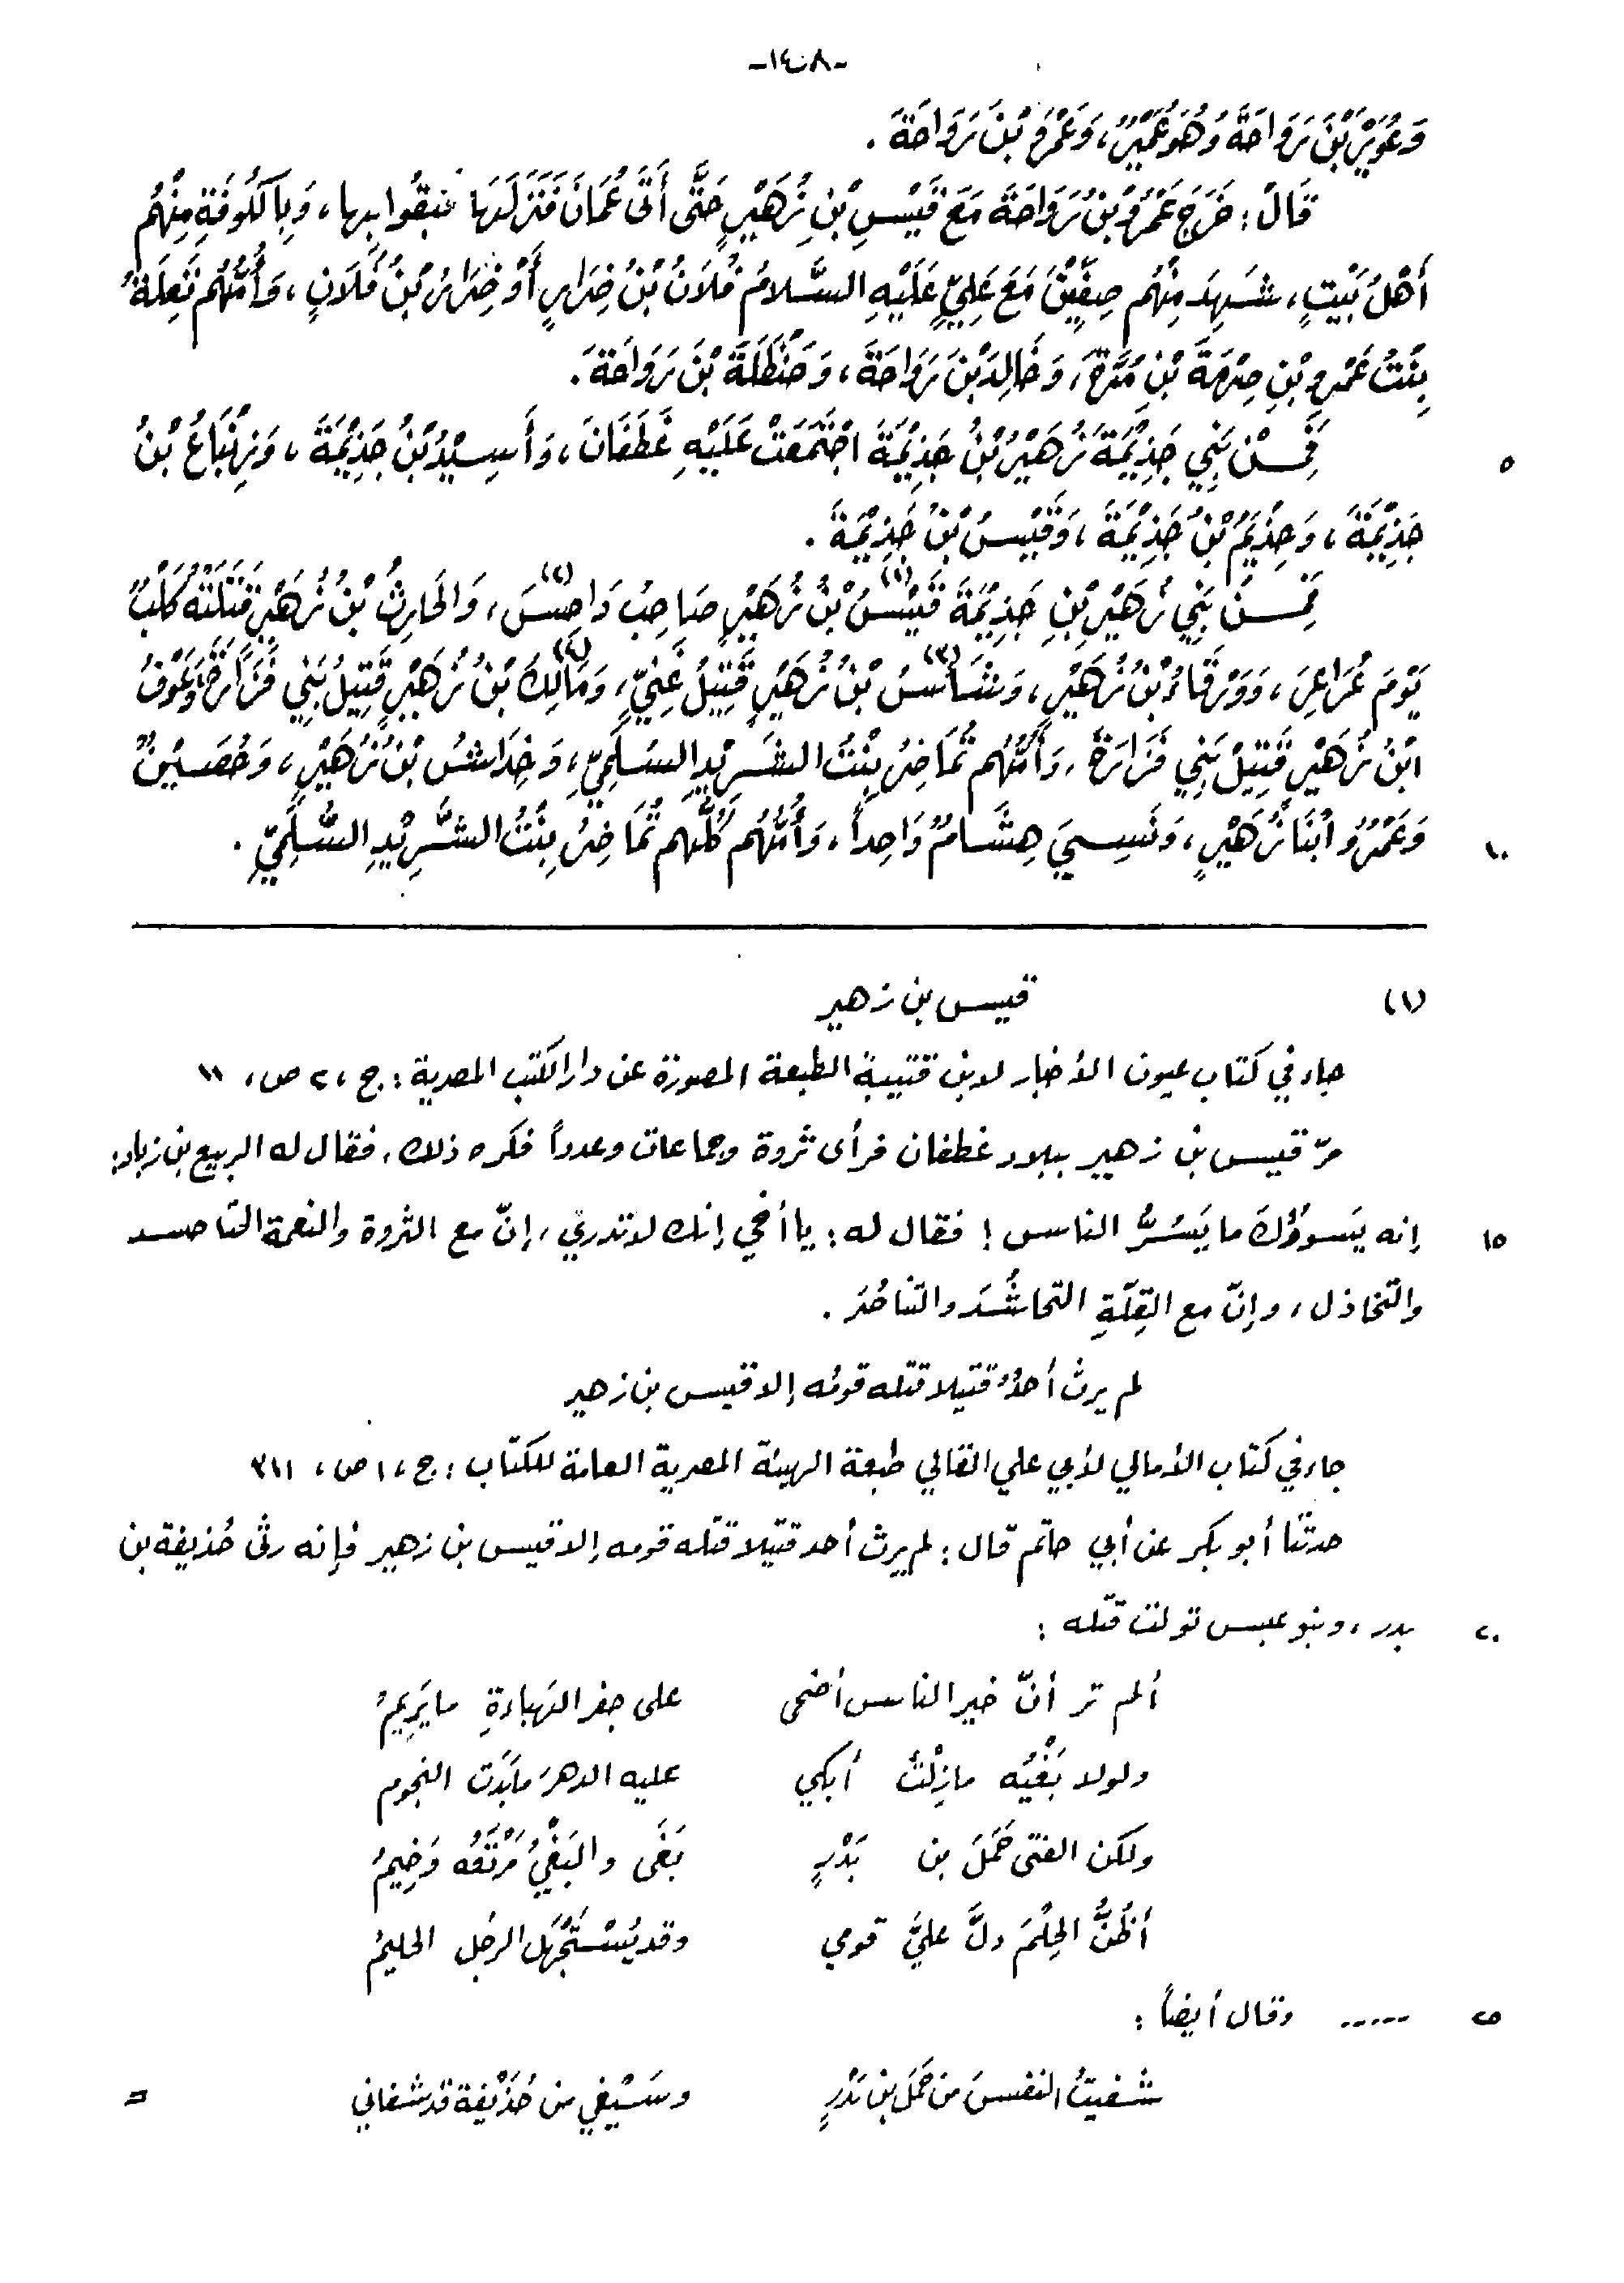 -١٤٠٨-
وَعُوَيْرَ بْنَ رَوَاحَةَ وَهُوَ عُمَيْرٌ، وَعَمْرَو بْنَ رَوَاحَةَ .
قَالَ : خَرَجَ عَمْرُو بْنُ رَوَاحَةَ مَعَ قَيْسِ بْنِ زُهَيْرٍ حَتَّى أَتَى عُمَانَ فَنَزَلَهَا فبقُوا بها، وَبِالكُوفَةِ مِنْهُم
أَهْلُ بَيْتٍ، شَهِدَ مِنْهُم صِفِّيْنَ مَعَ عَلِيٍّ عَلَيْهِ السَّلامُ فُلَانُ بْنُ ضِرَارٍ أَوْ ضِرَارُ بْنُ فُلَانٍ، وَأُمُّهُم نَعِلَةُ
بِنْتُ عَمْرِو بْنِ صِرْمَةَ بْنِ مُرَّةَ، وَخَالِدَ بْنَ رَوَاحَةَ، وَحَنْظَلَةَ بْنَ رَوَاحَةَ .
٥ فَمِنْ بَنِي جَذِيْمَةَ زُهَيْرُ بْنُ جَذِيْمَةَ اجْتَمَعَتْ عَلَيْهِ غَطَفَانُ، وَأَسِيْدُ بْنُ جَذِيْمَةَ، وَزِنْبَاعُ بْنُ
جَذِيْمَةَ، وَحِذْيَمُ بْنُ جَذِيْمَةَ، وَقَيْسُ بْنُ جَذِيْمَةَ .
فَمِنْ بَنِي زُهَيْرِ بْنِ جَذِيْمَةَ قَيْسُ(١) بْنُ زُهَيْرٍ صَاحِبُ دَاحِسَ(٢)، وَالحَارِثُ بْنُ زُهَيْرٍ قَتَلَتْهُ كَلْبٌ
يَوْمَ عُرَاعِرَ، وَوَرْقَاءُ بْنُ زُهَيْرٍ، وَشَأْسُ(٣) بْنُ زُهَيْرٍ قَتِيْلُ غَنِيٍّ، وَمَالِكُ(٤) بْنُ زُهَيْرٍ قَتِيْلُ بَنِي فَزَارَةَ، وَعَوْفُ
ابْنُ زُهَيْرٍ قَتِيْلُ بَنِي فَزَارَةَ، وَأُمُّهُم تُمَاضِرُ بِنْتُ الشَرِيْدِ السُلَمِيِّ، وَخِدَاشُ بْنُ زُهَيْرٍ، وَحُصَيْنٌ
١٠ وَعَمْرٌو ابْنَا زُهَيْرٍ، وَنَسِيَ هِشَامٌ وَاحِداً، وَأُمُّهُم كُلُّهم تُمَاضِرُ بِنْتُ الشَّرِيْدِ السُّلَمِيِّ .
(١) قيس بن زهير
جاء في كتاب عيون الأخبار لابن قتيبة الطبعة المصورة عن دار الكتب المصرية : ج ، ٢ ص ، ١١
مرّ قيس بن زهير ببلاد غطفان فرأى ثروة وجماعات وعدداً فكره ذلك، فقال له الربيع بن زياد:
١٥ إنه يَسوؤُكَ ما يَسُرُّ الناس ! فقال له : يا أخي إنك لا تدري، إنّ مع الثروة والنعمة التحاسد
والتخاذل، وإنّ مع القِلّةِ التحاشُدَ والتناصُرَ .
لم يرث أحدٌ قتيلا قتله قومُه إلا قيس بن زهير
جاء في كتاب الأمالي لأبي علي القالي طبعة الهيئة المصرية العامة للكتاب : ج ، ١ ص ، ٣١١
حدثنا أبو بكر عن أبي حاتم قال : لم يرث أحد قتيلا قتله قومه إلا قيس بن زهير فإنه رثى حُذيفة بن
٢٠ بدر، وبنو عبس تولت قتله :
ألم تر أنّ خير الناس أضحى على جفر الهَباءةِ ما يَرِيمُ
ولولا بَغْيُه مازِلْتُ أبكي عليه الدهرَ ما بَدَت النجوم
ولكن الفتى حَمَلَ بن بَدْرٍ بَغَى والبَغْيُ مَرْتَعُه وَخِيمُ
أظُنُّ الحِلْمَ دلَّ عليَّ قومي وقد يُسْتَجْهَل الرجل الحليمُ
٢٥ ..... وقال أيضاً :
شفيتُ النفسَ من حَمَلِ بن بَدْرٍ وسَيْفِي من حُذَيْفة قد شفاني =